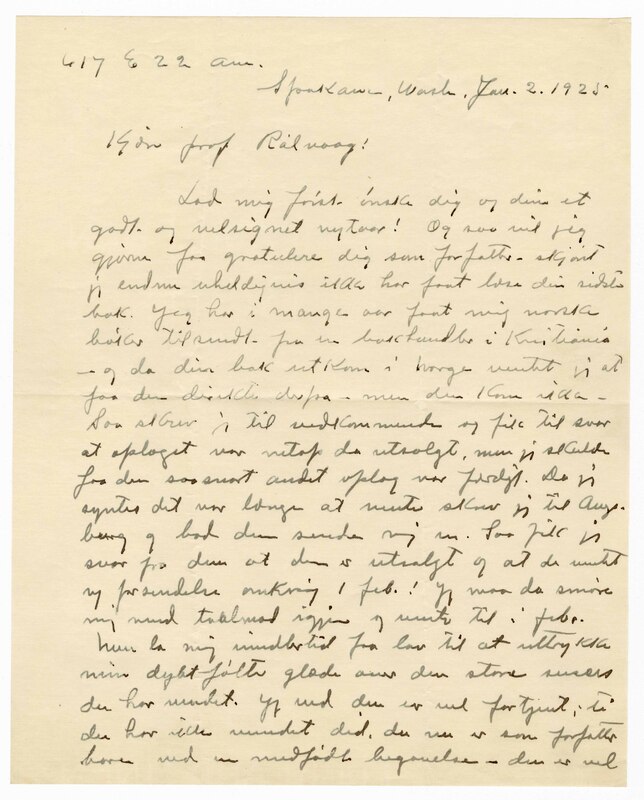 617 E 22 ave.
Spokane, Wash. Jan. 2. 1925
Kjære prof Rølvaag!
Lad mig først ønske dig og dine et
godt og velsignet nytaar! Og saa vil jeg
gjerne faa gratulere dig som forfatter - skjønt
jeg endnu uheldigvis ikke har faat læse din sidste
bok. Jeg har i mange aar faat mig norske
bøker tilsendt fra en bokhandler i Kristiania
- og da din bok utkom i Norge ventet jeg at
faa den direkte derfra - men den kom ikke -
Saa skrev jeg til vedkommende og fik til svar
at oplaget var netop da utsolgt, men jeg skulde
faa den saasnart andet oplag var færdigt. Da jeg
syntes det var længe at vente skrev jeg til Augs-
burg og bad dem sende mig en. Saa fik jeg
svar fra dem at den er utsolgt og at de ventet
ny forsendelse omkring 1 feb.! Jeg maa da smøre
mig med taalmod igjen og vente til i feb.
Men la mig imidlertid faa lov til at uttrykke
min dybtfølte glæde over den store succes
du har vundet. Jeg ved den er vel fortjent; ti
du har ikke vundet did, du nu er som forfatter
bare ved en medfødt begavelse - den er vel